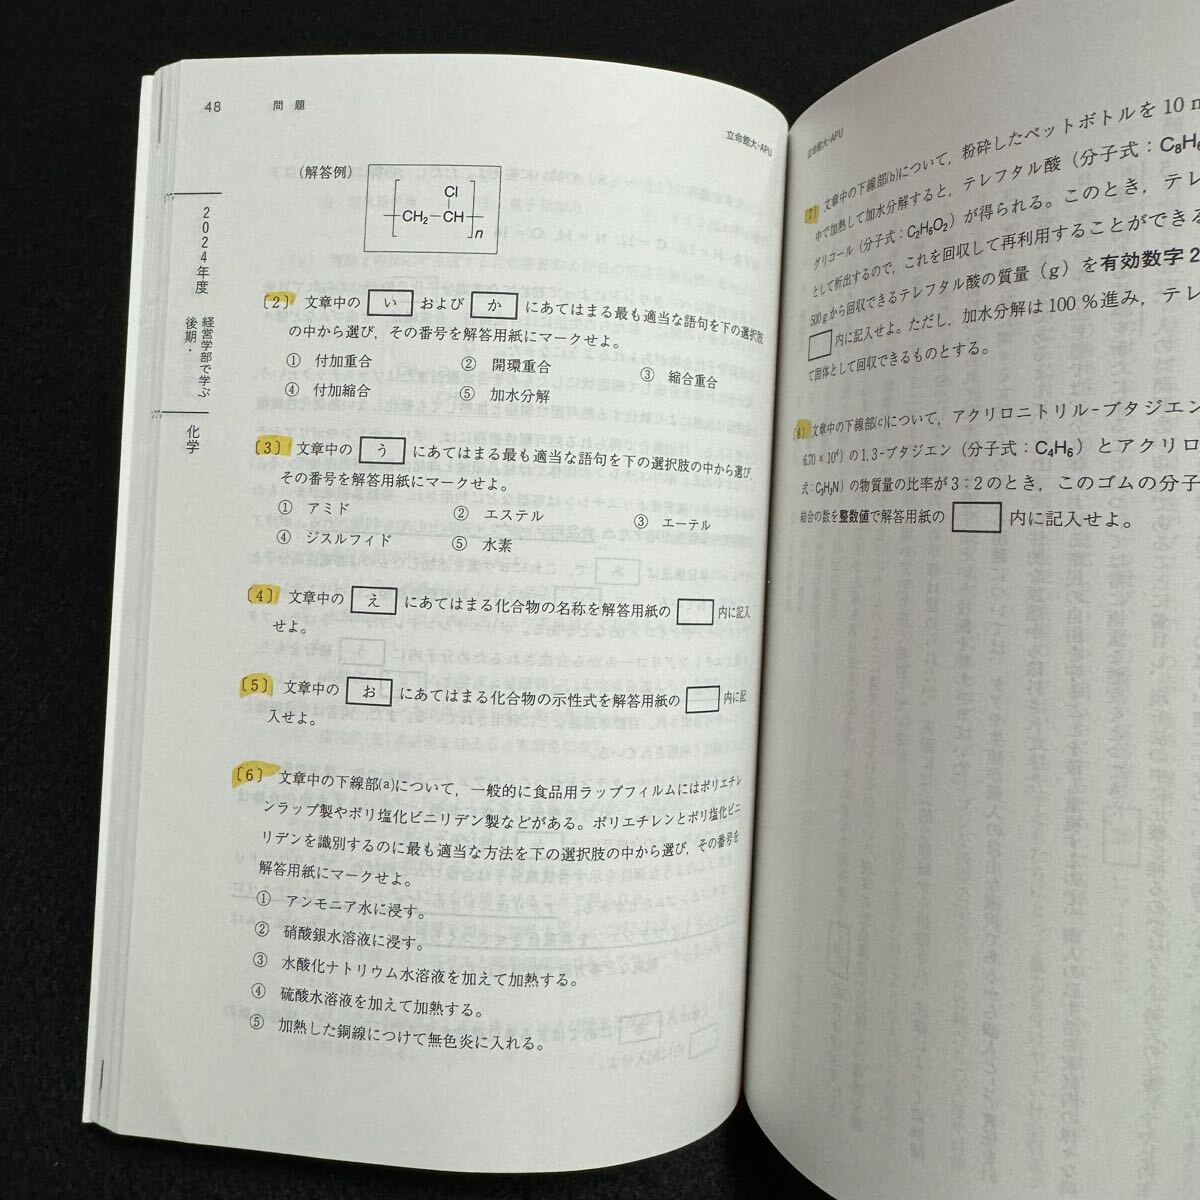 48 問題
立命館大・APU
2024年度
経営学部で学ぶ
後期・
化学
(解答例)
Cl
CH₂ CH
n
〔2〕 文章中の い および か にあてはまる最も適当な語句を下の選択肢
の中から選び，その番号を解答用紙にマークせよ。
① 付加重合 ② 開環重合 ③ 縮合重合
④ 付加縮合 ⑤ 加水分解
〔3〕 文章中の う にあてはまる最も適当な語句を下の選択肢の中から選び，
その番号を解答用紙にマークせよ。
① アミド ② エステル ③ エーテル
④ ジスルフィド ⑤ 水素
〔4〕 文章中の え にあてはまる化合物の名称を解答用紙の 内に記入
せよ。
〔5〕 文章中の お にあてはまる化合物の示性式を解答用紙の 内に記
入せよ。
〔6〕 文章中の下線部(a)について，一般的に食品用ラップフィルムにはポリエチレ
ンラップ製やポリ塩化ビニリデン製などがある。ポリエチレンとポリ塩化ビニ
リデンを識別するのに最も適当な方法を下の選択肢の中から選び，その番号を
解答用紙にマークせよ。
① アンモニア水に浸す。
② 硝酸銀水溶液に浸す。
③ 水酸化ナトリウム水溶液を加えて加熱する。
④ 硫酸水溶液を加えて加熱する。
⑤ 加熱した銅線につけて無色炎に入れる。
立命館大・APU
〔7〕 文章中の下線部(b)について，粉砕したペットボトルを 10 m
中で加熱して加水分解すると，テレフタル酸（分子式：C₈H₆
グリコール（分子式：C₂H₆O₂）が得られる。このとき，テレ
として析出するので，これを回収して再利用することができる
500 g から回収できるテレフタル酸の質量（g）を有効数字 2
内に記入せよ。ただし，加水分解は 100 % 進み，テレ
て固体として回収できるものとする。
〔8〕 文章中の下線部(c)について，アクリロニトリル-ブタジエン
6.70 × 10⁴）の 1, 3-ブタジエン（分子式：C₄H₆）とアクリロ
式：C₃H₃N）の物質量の比率が 3：2 のとき，このゴムの分子
結合の数を整数値で解答用紙の 内に記入せよ。